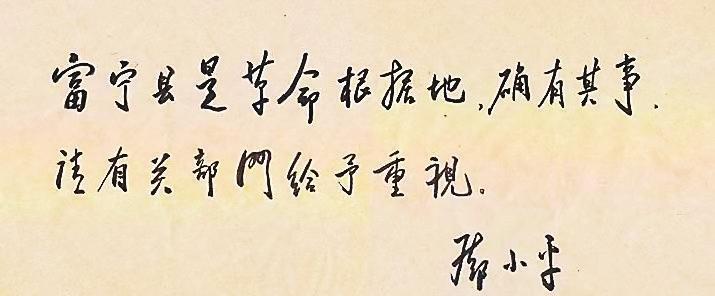 富宁县是革命根据地,确有其事.
请有关部門给予重視.
邓小平